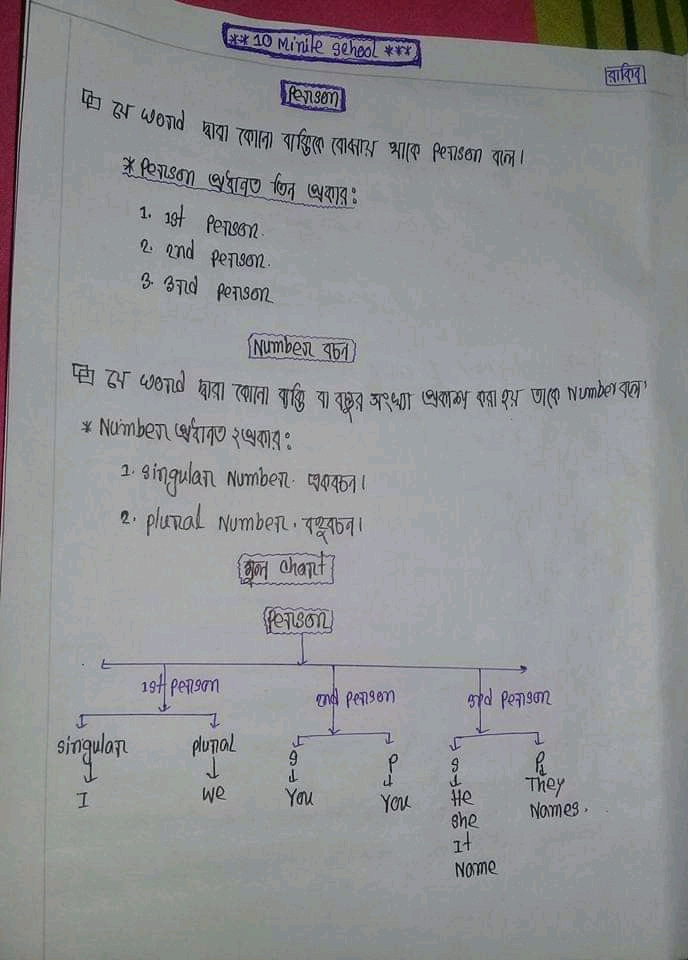 ** 10 Minite School ***
রাকিব
Person
যে word দ্বারা কোনো ব্যক্তিকে বোঝায় থাকে Person বলে।
* Person প্রধানত তিন প্রকার:
1. 1st Person.
2. 2nd Person.
3. 3rd Person
Number বচন
যে word দ্বারা কোনো ব্যক্তি বা বস্তুর সংখ্যা প্রকাশ করা হয় তাকে Number বলে।
* Number প্রধানত ২প্রকার:
1. Singular Number. একবচন।
2. plural Number. বহুবচন।
মূল Chart
Person
1st person 2nd person 3rd person
Singular plural S P S P
I We You You He They
She Names.
It
Name